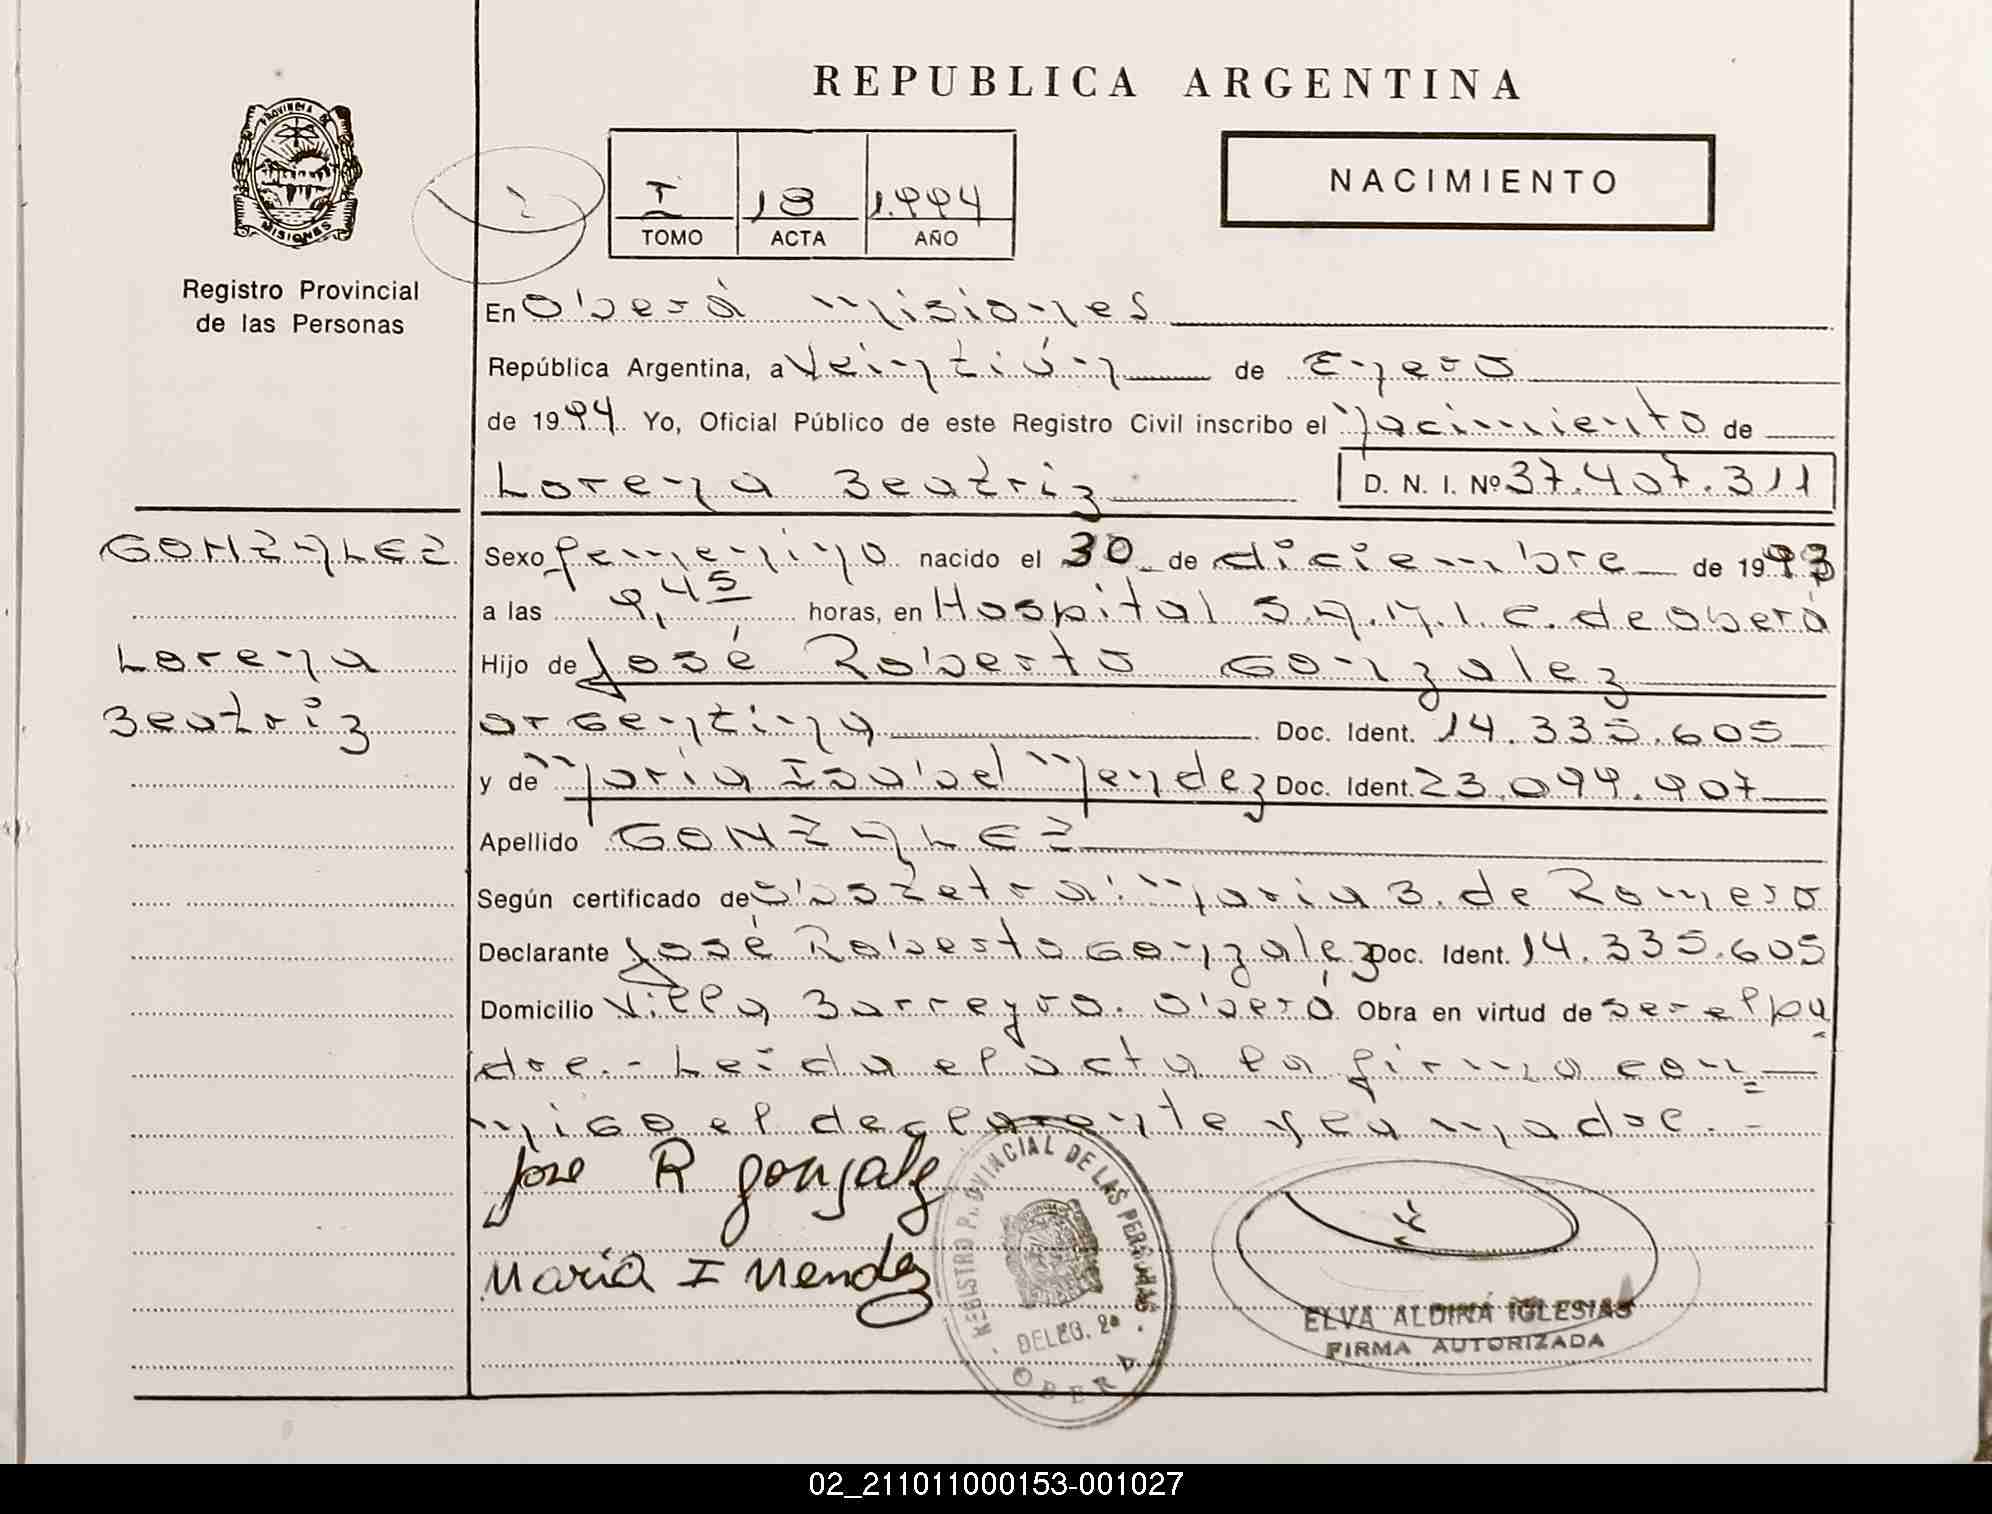 REPUBLICA ARGENTINA
PROVINCIA DE
MISIONES
I 18 1.994
TOMO ACTA AÑO
NACIMIENTO
Registro Provincial
de las Personas
En Oberá Misiones
República Argentina, a Veintiún de Enero
de 1994 Yo, Oficial Público de este Registro Civil inscribo el Nacimiento de
Lorena Beatriz D. N. I. Nº 37.407.311
GONZALEZ
Lorena
Beatriz
Sexo femenino nacido el 30 de diciembre de 1993
a las 9,45 horas, en Hospital S.A.M.I.C. de Oberá
Hijo de José Roberto Gonzalez
argentina Doc. Ident. 14.335.605
y de María Isabel Mendez Doc. Ident. 23.099.907
Apellido GONZALEZ
Según certificado de Obstetra: María B. de Romero
Declarante José Roberto Gonzalez Doc. Ident. 14.335.605
Domicilio Villa Barreyro. Oberá Obra en virtud de ser el pa
dre.- Leída el acta la firma con
migo el declarante y la madre.-
Jose R Gonzalez
Maria I Mendez
REGISTRO PROVINCIAL DE LAS PERSONAS
DELEG. 2ª
OBERA
ELVA ALDINA IGLESIAS
FIRMA AUTORIZADA
02_211011000153-001027